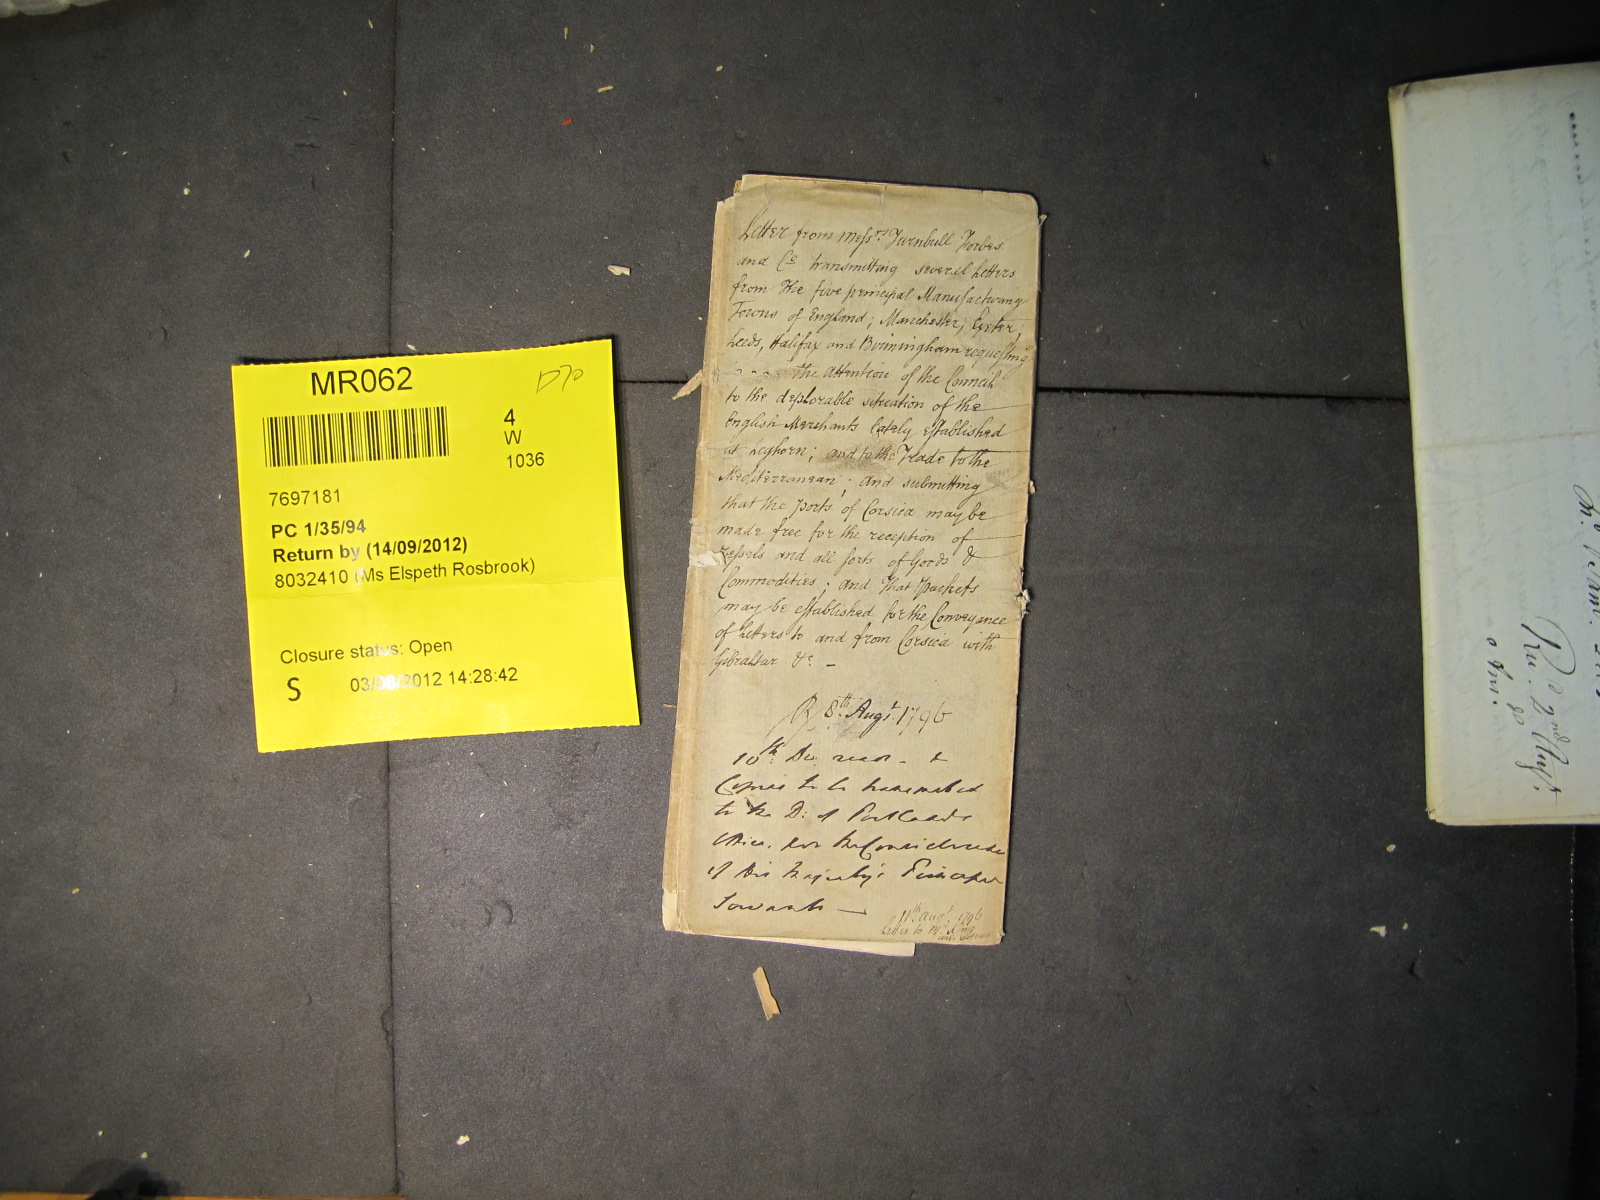 MR062
4
W
1036
7697181
PC 1/35/94
Return by (14/09/2012)
8032410 (Ms Elspeth Rosbrook)
Closure status: Open
S 03/08/2012 14:28:42
Letter from Messrs. Turnbull Forbes
and Co transmitting several Letters
from The five principal Manufacturing
Towns of England; Manchester, Exeter,
Leeds, Halifax and Birmingham requesting
the Attention of the Council
to the deplorable situation of the
English Merchants lately established
at Leghorn; and to the Trade to the
Mediterranean; and submitting
that the Ports of Corsica may be
made free for the reception of
Vessels and all sorts of Goods &
Commodities; and That Packets
may be established for the Conveyance
of Letters to and from Corsica with
Gibraltar &c. –
R 8th. Augst. 1796
10th. Do. read - &
Copies to be transmitted
to the D: of Portlands
Office, for the Consideration
of His Majesty's
Servants —
11th. Augt. 1796
Letter to Mr. King
Re. 2nd Augst.